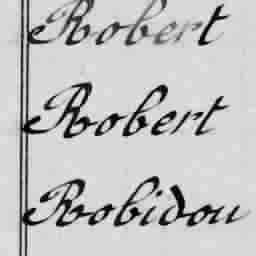 Robert
Robert
Robidou